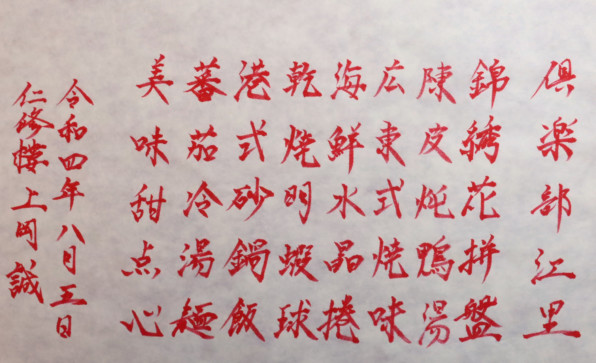 倶楽部江里
錦綉花拼盤
陳皮炖鴨湯
広東式焼味
海鮮水晶捲
乾焼明蝦球
港式砂鍋飯
蕃茄冷湯麺
美味甜点心
令和四年八月五日
仁修樓上岡誠